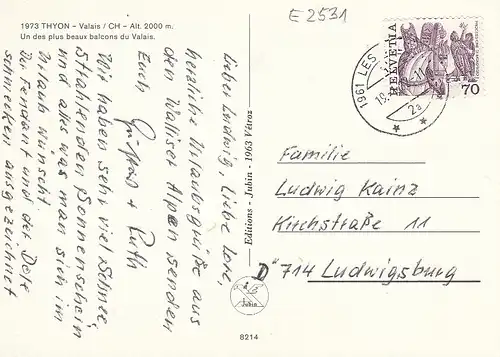 1973 THYON – Valais / CH – Alt. 2000 m.
Un des plus beaux balcons du Valais.
E 2531
HELVETIA
70
1961 LES
2a
Lieber Ludwig, liebe Lore,
herzliche Urlaubsgrüße aus
den Walliser Alpen senden
Euch
Ruth
Wir haben sehr viel Schnee,
strahlenden Sonnenschein
und alles was man sich im
Urlaub wünscht.
Der Fendant und der Dole
schmecken ausgezeichnet
Editions - Jubin - 1963 Vétroz
Jubin
8214
Familie
Ludwig Kainz
Kirchstraße 11
D 714 Ludwigsburg